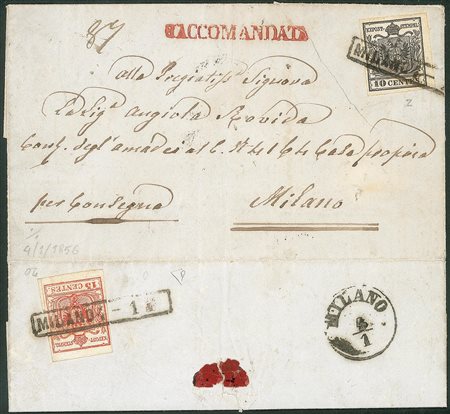 87
RACCOMANDATA
KKPOST-STEMPEL
10 CENTES
MILANO
alla Pregiatisma Signora
La Sigra Angiola Rovida
Conda degl'amadei al C. N 41 64 Casa propria
per Consegna
Milano
4/1/1856
15 CENTES
KKPOST-STEMPEL
MILANO - 1
MILANO
4/1